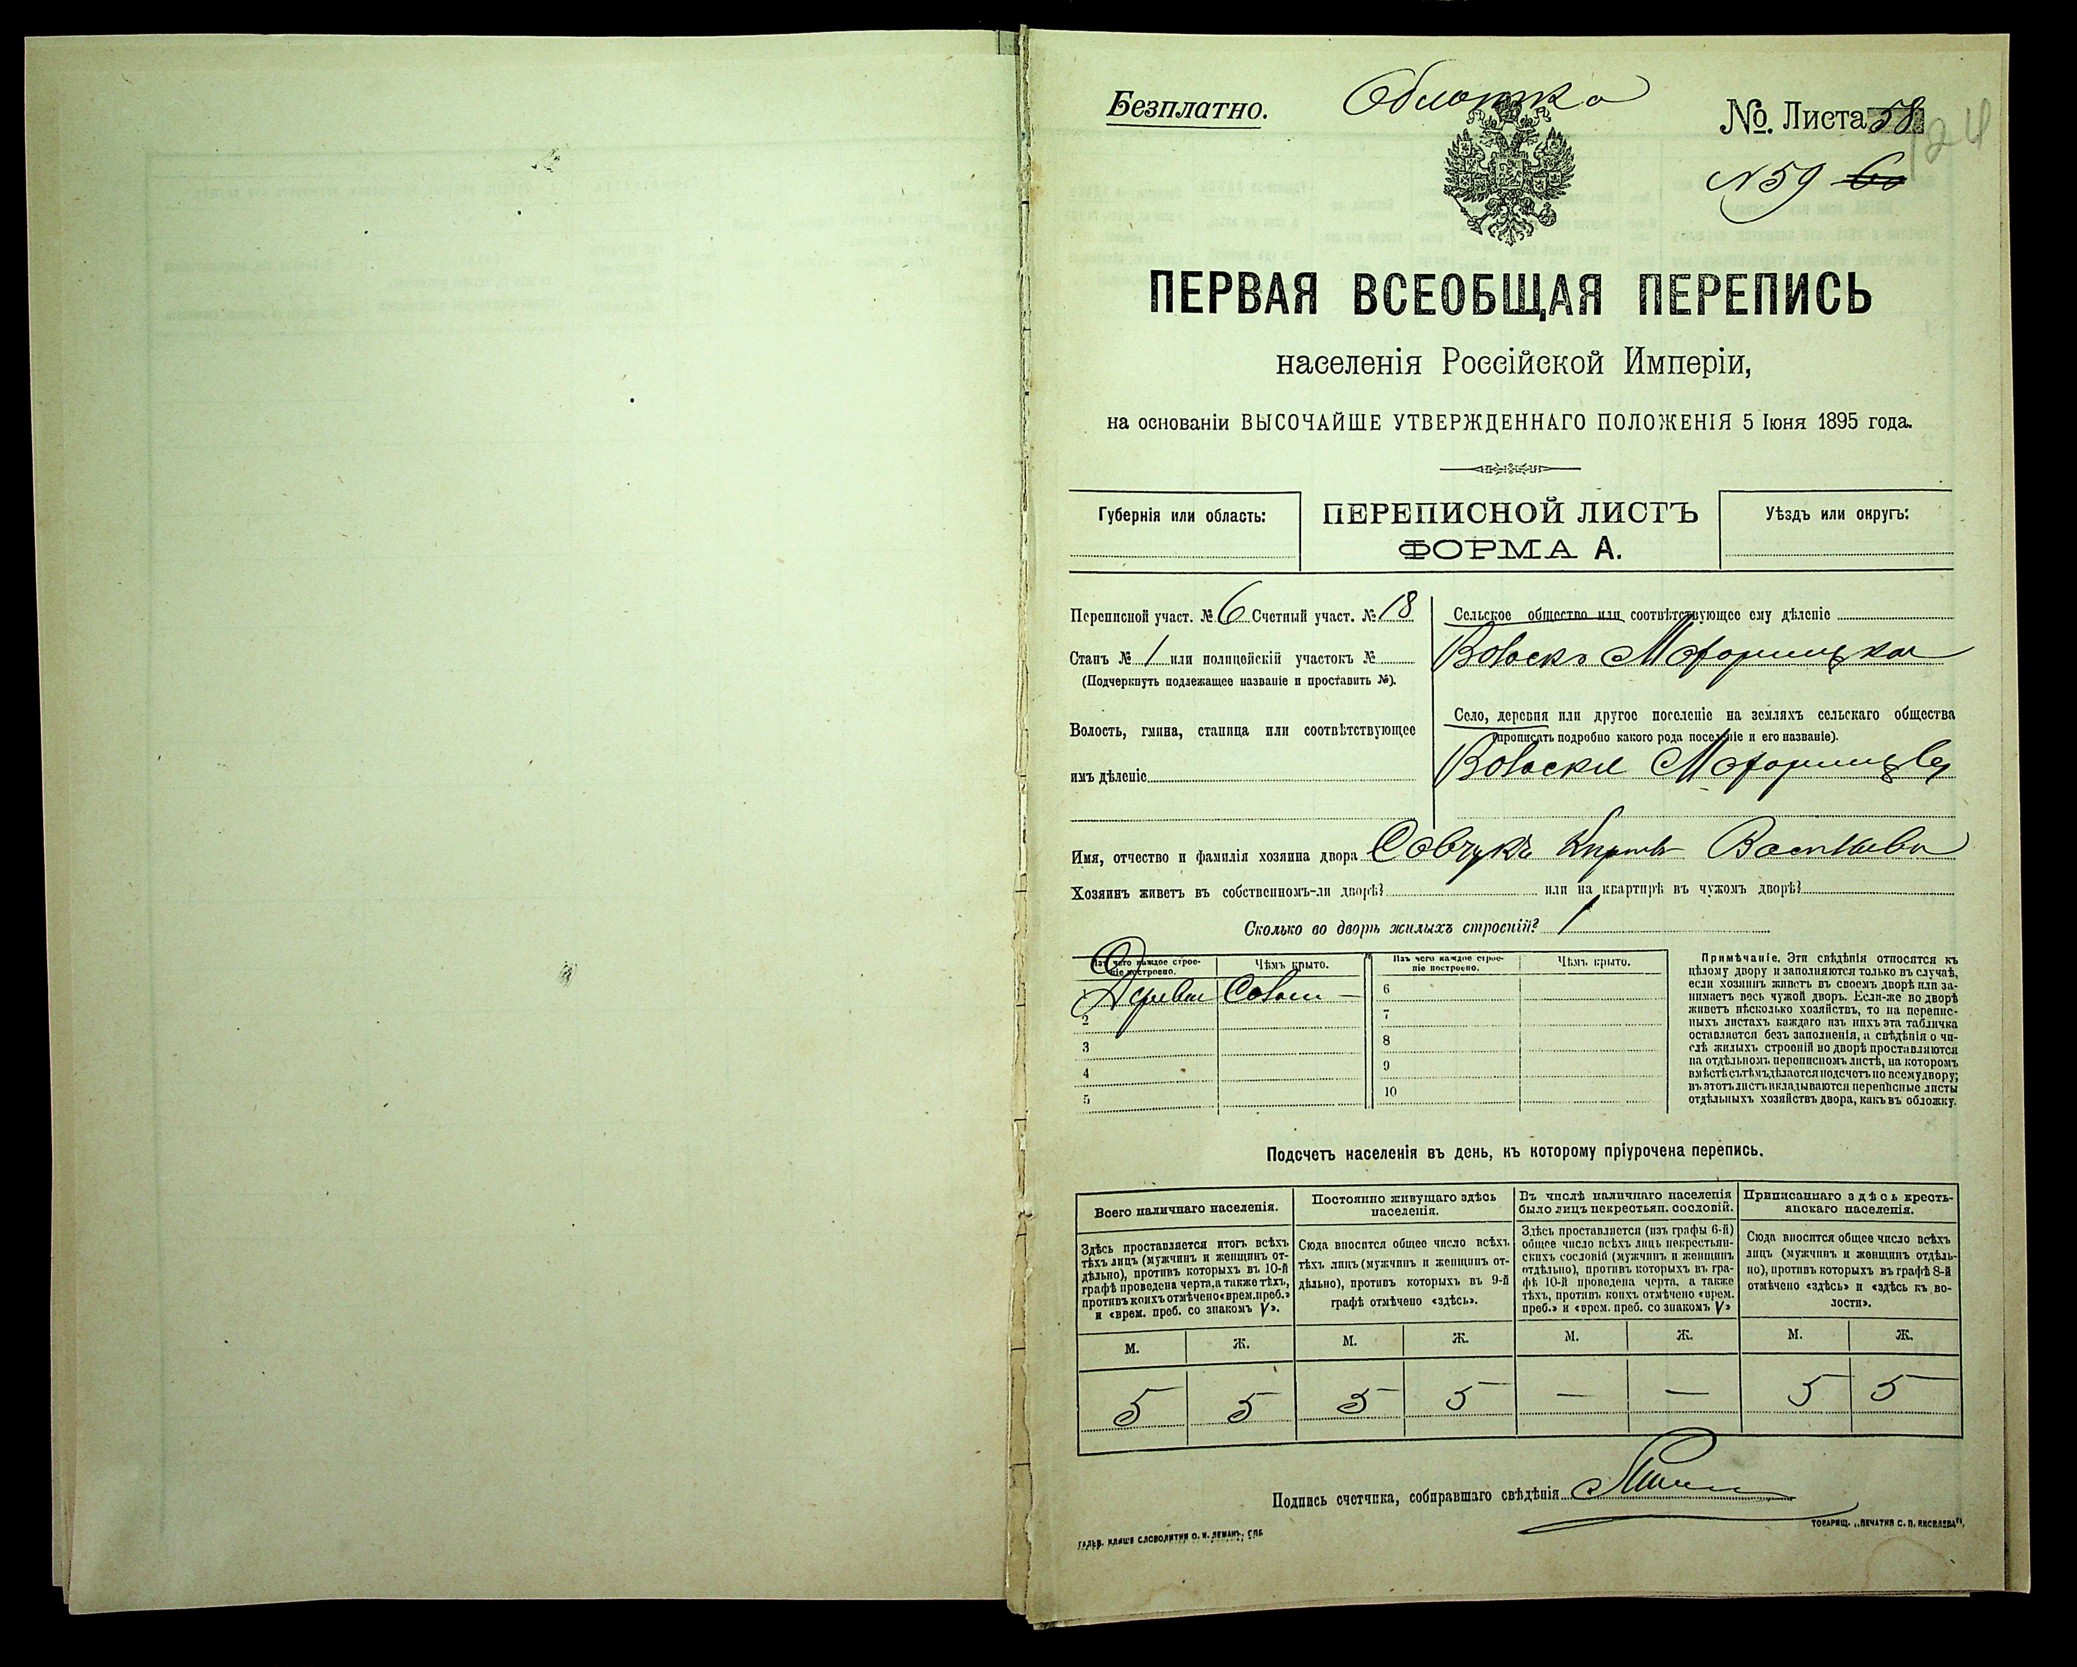 Безплатно.
Обложка
№. Листа 58
124
N 59 60
ПЕРВАЯ ВСЕОБЩАЯ ПЕРЕПИСЬ
населенія Россійской Имперіи,
на основаніи ВЫСОЧАЙШЕ УТВЕРЖДЕННАГО ПОЛОЖЕНІЯ 5 Іюня 1895 года.
Губернія или область:
ПЕРЕПИСНОЙ ЛИСТЪ
ФОРМА А.
Уѣздъ или округъ:
Переписной участ. № 6 Счетный участ. № 18
Станъ № 1 или полицейскій участокъ №
(Подчеркнуть подлежащее названіе и проставить №).
Волость, гмина, станица или соотвѣтствующее
имъ дѣленіе
Сельское общество или соотвѣтствующее ему дѣленіе
Село, деревня или другое поселеніе на земляхъ сельскаго общества
(прописать подробно какого рода поселеніе и его названіе).
Имя, отчество и фамилія хозяина двора Савчукъ
Хозяинъ живетъ въ собственномъ-ли дворѣ? или на квартирѣ въ чужомъ дворѣ?
Сколько во дворѣ жилыхъ строеній? 1
Изъ чего каждое строе-
ніе построено.
Чѣмъ крыто.
1
2
3
4
5
Изъ чего каждое строе-
ніе построено.
Чѣмъ крыто.
6
7
8
9
10
Примѣчаніе. Эти свѣдѣнія относятся къ
цѣлому двору и заполняются только въ случаѣ,
если хозяинъ живетъ въ своемъ дворѣ или за-
нимаетъ весь чужой дворъ. Если-же во дворѣ
живетъ нѣсколько хозяйствъ, то на перепис-
ныхъ листахъ каждаго изъ нихъ эта табличка
оставляется безъ заполненія, а свѣдѣнія о чи-
слѣ жилыхъ строеній во дворѣ проставляются
на отдѣльномъ переписномъ листѣ, на которомъ
вмѣстѣ съ тѣмъ дѣлается подсчетъ по всему двору;
въ этотъ листъ вкладываются переписные листы
отдѣльныхъ хозяйствъ двора, какъ въ обложку.
Подсчетъ населенія въ день, къ которому пріурочена перепись.
Всего наличнаго населенія.
Здѣсь проставляется итогъ всѣхъ
тѣхъ лицъ (мужчинъ и женщинъ от-
дѣльно), противъ которыхъ въ 10-й
графѣ проведена черта, а также тѣхъ,
противъ коихъ отмѣчено «врем. преб.»
и «врем. преб. со знакомъ V».
М. Ж.
5 5
Постоянно живущаго здѣсь
населенія.
Сюда вносится общее число всѣхъ
тѣхъ лицъ (мужчинъ и женщинъ от-
дѣльно), противъ которыхъ въ 9-й
графѣ отмѣчено «здѣсь».
М. Ж.
5 5
Въ числѣ наличнаго населенія
было лицъ некрестьян. сословій.
Здѣсь проставляется (изъ графы 6-й)
общее число всѣхъ лицъ некрестьян-
скихъ сословій (мужчинъ и женщинъ
отдѣльно), противъ которыхъ въ гра-
фѣ 10-й проведена черта, а также
тѣхъ, противъ коихъ отмѣчено «врем.
преб.» и «врем. преб. со знакомъ V»
М. Ж.
— —
Приписаннаго здѣсь кресть-
янскаго населенія.
Сюда вносится общее число всѣхъ
лицъ (мужчинъ и женщинъ отдѣль-
но), противъ которыхъ въ графѣ 8-й
отмѣчено «здѣсь» и «здѣсь въ во-
лости».
М. Ж.
5 5
Подпись счетчика, собиравшаго свѣдѣнія
ГАЛЬВ. КЛИШЕ СЛОВОЛИТНИ О. И. ЛЕМАНЪ, СПБ
ТОВАРИЩ. „ПЕЧАТНЯ С. П. ЯКОВЛЕВА“.